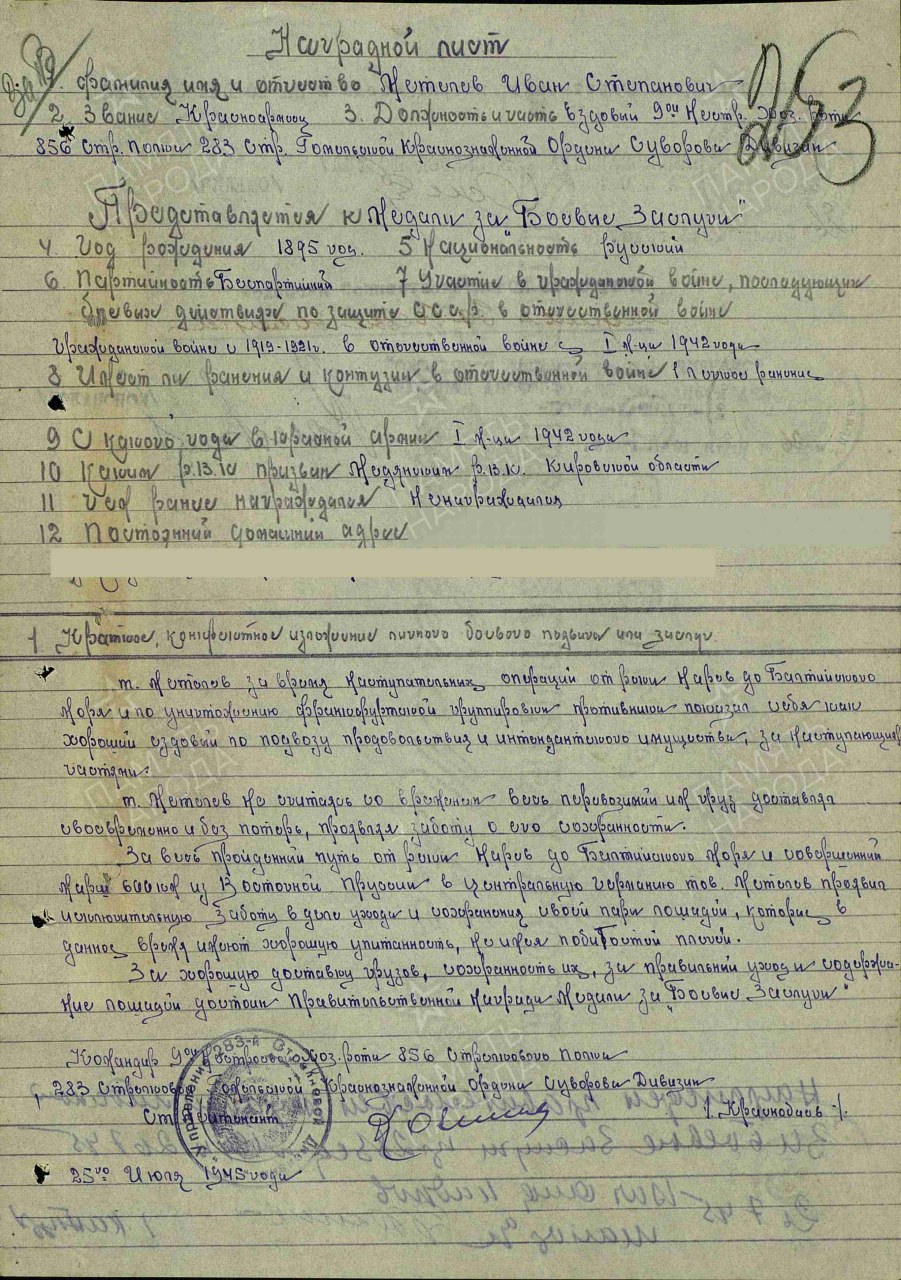 Наградной лист
1. Фамилия имя и отчество Метелев Иван Степанович
2. Звание Красноармеец 3. Должность и часть Ездовый 9ой Нестр. Хоз. роты
856 Стр. Полка 283 Стр. Гомельской Краснознаменной Ордена Суворова Дивизии
253
Представляется к Медали за "Боевые Заслуги"
4. Год рождения 1895 год. 5 Национальность Русский
6. Партийность Беспартийный 7 Участие в гражданской войне, последующих
боевых действиях по защите СССР в отечественной войне
Гражданской войне с 1919-1921г. в отечественной войне с I м-ца 1942 года
8 Имеет ли ранения и контузии в отечественной войне 1 легкое ранение
9 С какого года в красной армии I м-ца 1942 года
10 Каким Р.В.К призван Медянским Р.В.К. Кировской области
11 Чем ранее награждался Не награждался
12 Постоянный домашний адрес
1 Краткое, конкретное изложение личного боевого подвига или заслуг.
т. Метелев за время наступательных операций от реки Нарев до Балтийского
моря и по уничтожению франкфуртской группировки противника показал себя как
хороший ездовый по подвозу продовольствия и интендантского имущества, за наступающими
частями.
т. Метелев не считаясь со временем весь перевозимый им груз доставлял
своевременно и без потерь, проявляя заботу о его сохранности.
За весь пройденный путь от реки Нарев до Балтийского моря и совершенный
марш 600 км из Восточной Пруссии в центральную Германию тов. Метелев проявил
исключительную заботу в деле ухода и сохранения своей пары лошадей, которые в
данное время имеют хорошую упитанность, не имея побитостей плечей.
За хорошую доставку грузов, сохранность их, за правильный уход и содержа-
ние лошадей достоин Правительственной Награды Медали за "Боевые Заслуги"
Командир 9ой Нестроевой Хоз. роты 856 Стрелкового Полка
283 Стрелковой Гомельской Краснознаменной Ордена Суворова Дивизии
Ст. лейтенант /. Краснобаев -/.
25го Июля 1945 года